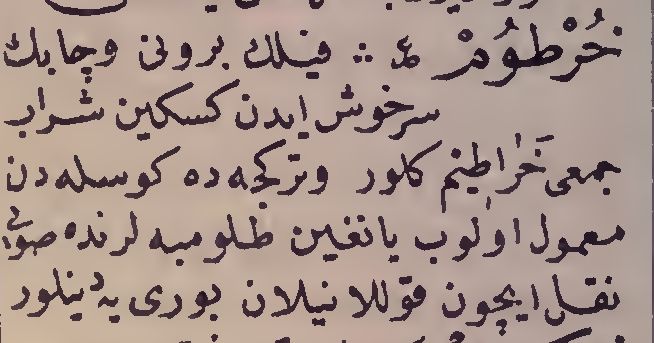 خُرْطُومْ ع :: فیلك برونی وچابك
سرخوش ایدن كسكین شراب
جمعی خَرٰاطِیمْ كلور وتركجه ده كوسله دن
معمول اولوب یانغین طلومبه لرنده صویی
نقل ایچون قوللانیلان بوری یه دینلور